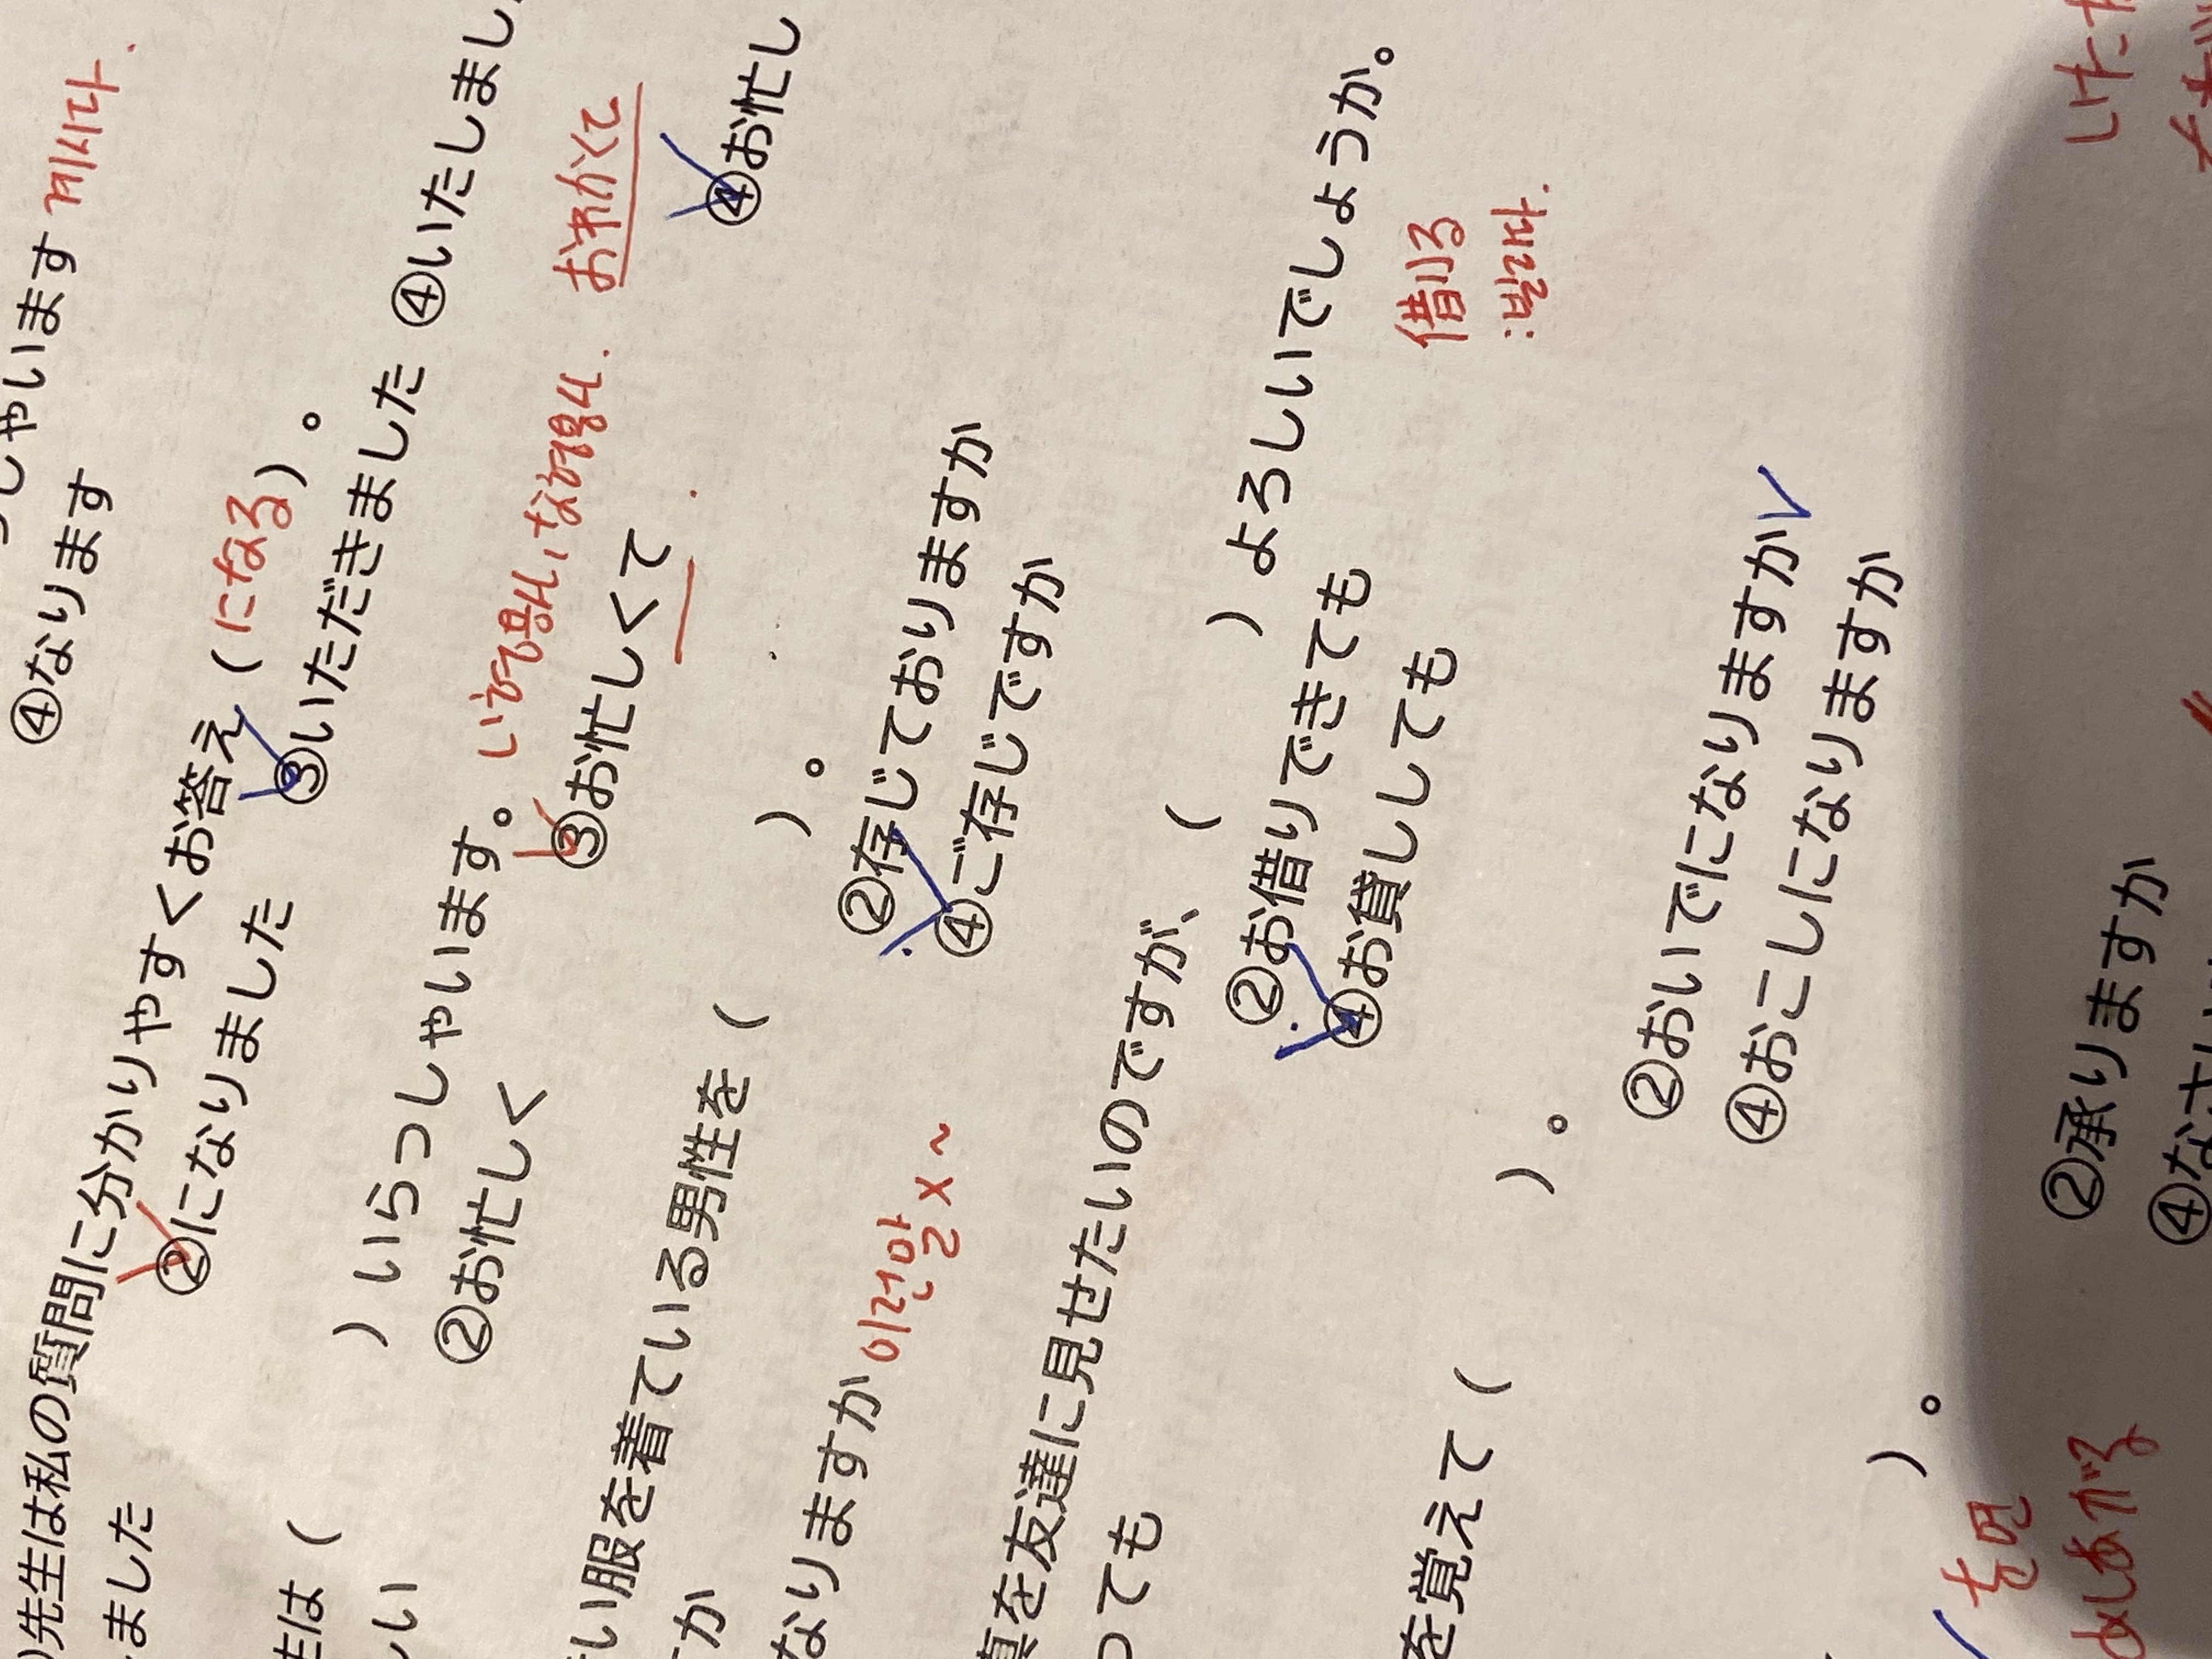 しゃいます 계시다.
④なります
先生は私の質問に分かりやすくお答え（になる）。
ました ②になりました ③いただきました ④いたしまし
は（ ）いらっしゃいます。 い형용사, な형용사. おわかくて
しい ②お忙しく ③お忙しくて ④お忙し
い服を着ている男性を（ ）。
か ②存じておりますか
なりますか 이런말 x~ ④ご存じですか
真を友達に見せたいのですが、（ ）よろしいでしょうか。
っても ②お借りできても 借りる
④お貸ししても :빌리다.
を覚えて（ ）。
②おいでになりますか
④おこしになりますか
）。
②承りますか
めしあがる